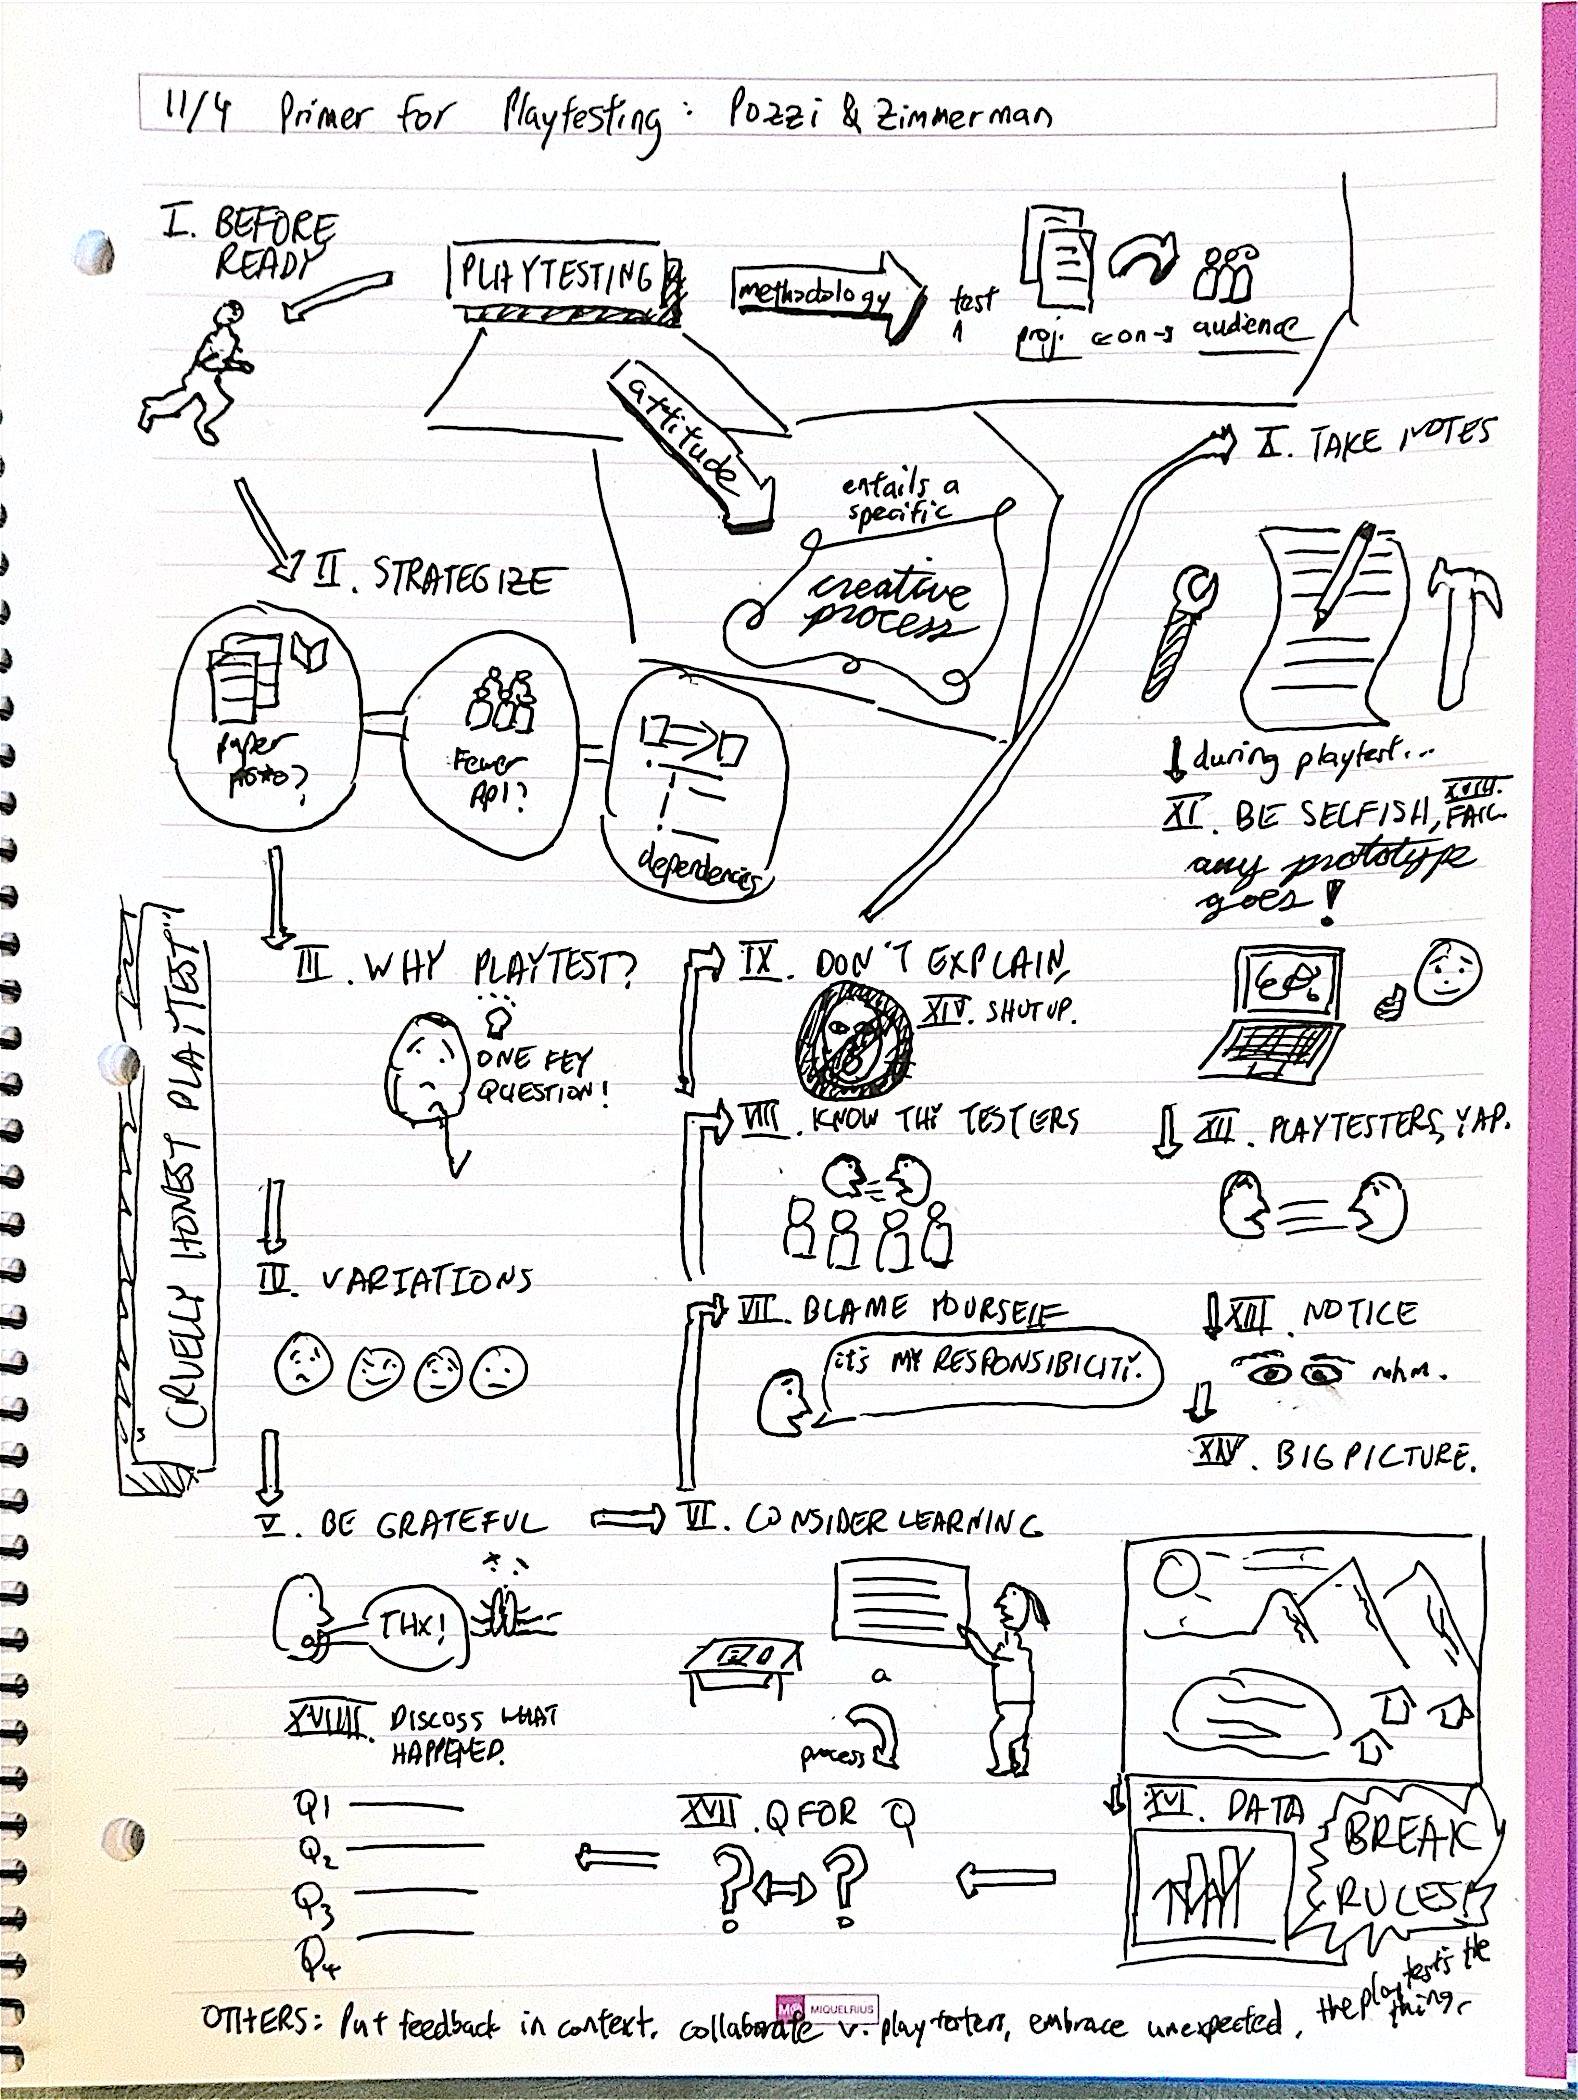 11/4 Primer for Playtesting: Pozzi & Zimmerman
I. BEFORE
READY
PLAYTESTING
methodology
test
1
proj.
audience
attitude
entails a
specific
creative
process
II. STRATEGIZE
paper
Fewer
API?
dependencies
CRUELLY HONEST PLAYTEST
III. WHY PLAYTEST?
ONE KEY
QUESTION!
IV. VARIATIONS
V. BE GRATEFUL
THX!
VI. CONSIDER LEARNING
a
process
VII. BLAME YOURSELF
it's MY RESPONSIBILITY.
VIII. KNOW THY TESTERS
IX. DON'T EXPLAIN,
XIV. SHUT UP.
X. TAKE NOTES
during playtest...
XI. BE SELFISH, XVIII. FAIL
any prototype
goes!
XII. PLAYTESTERS, YAP.
XIII. NOTICE
mhm.
XIV. BIG PICTURE.
XVI. DATA
BREAK
RULES!
XVII. Q FOR Q
? ?
XVIIII. DISCUSS WHAT
HAPPENED.
Q1
Q2
Q3
Q4
OTHERS: Put feedback in context, collaborate v. playtesters, embrace unexpected, the playtest's the
thing.
MIQUELRIUS